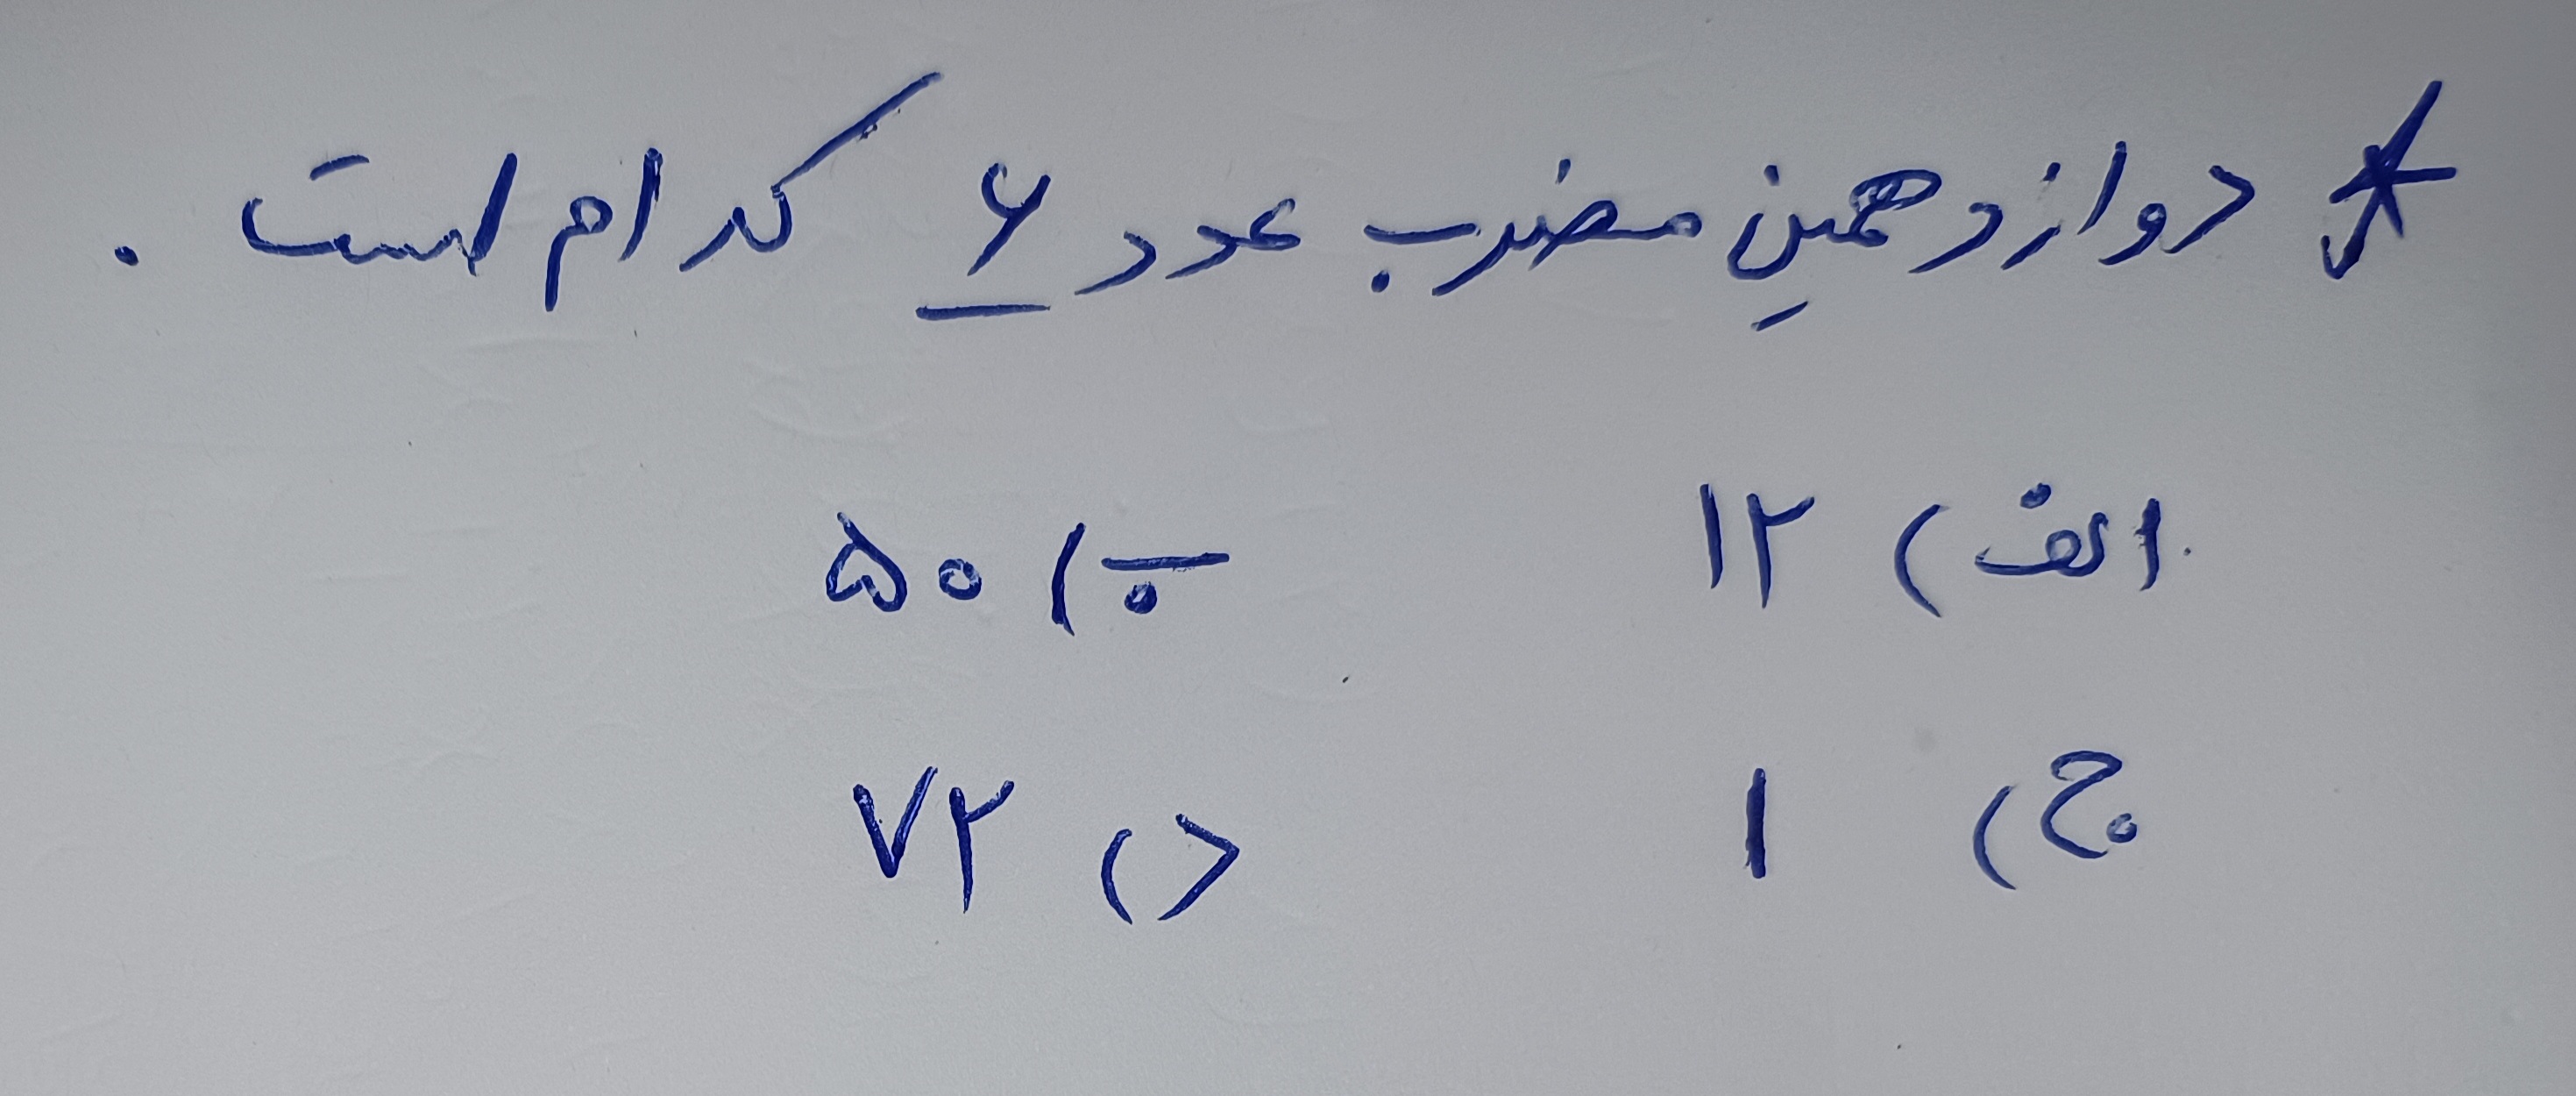 * دوازدهمینِ مضرب عدد ۶ کدام است .
الف) ۱۲ ب) ۵۰
ج) ۱ د) ۷۲